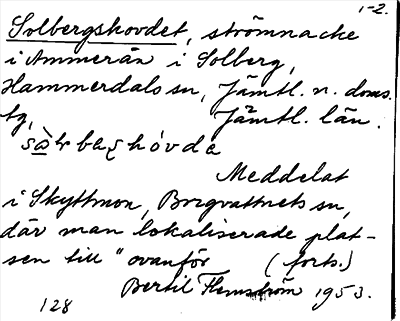 1-2.
Solbergshovdet, strömnacke
i Ammerån i Solberg,
Hammerdals sn, Jämtl. n. doms.
tg, Jämtl. län.
Meddelat
i Skyttmon, Borgvattnets sn,
där man lokaliserade plat-
sen till "ovanför (forts.)
Bertil Flemström 1953.
128